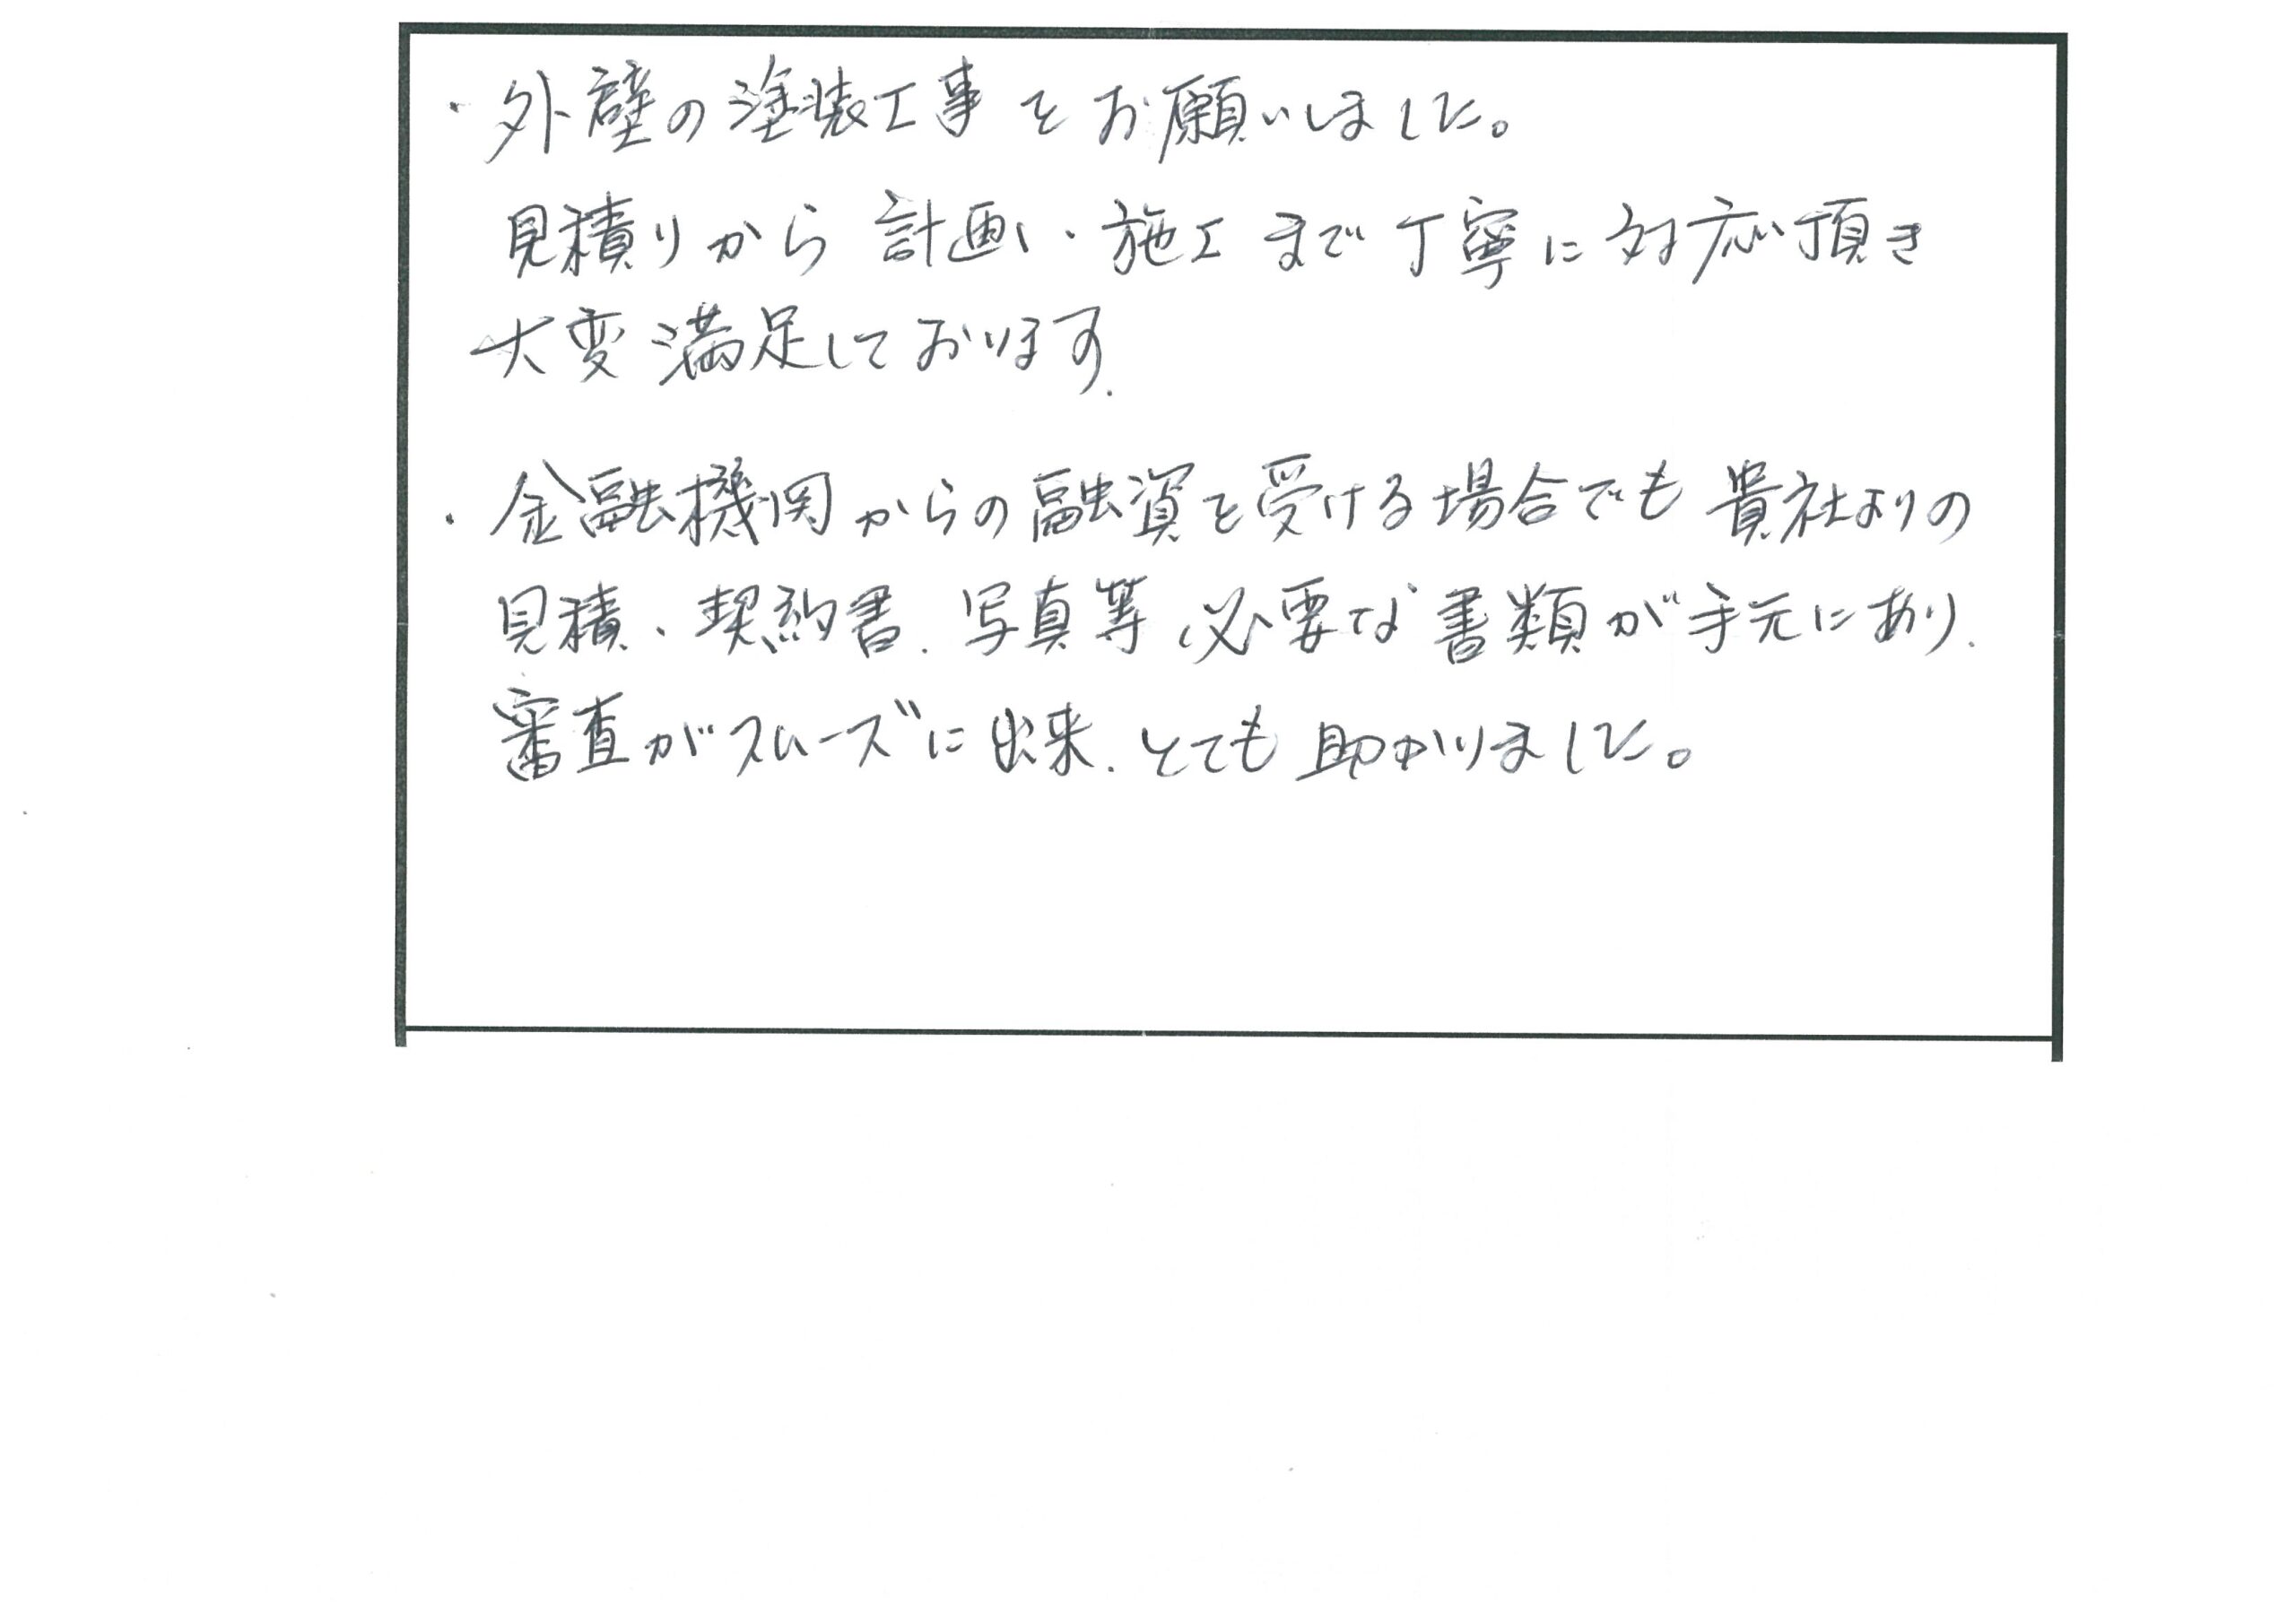 ・外壁の塗装工事をお願いしました。
見積りから計画、施工まで丁寧に対応頂き
大変満足しております.
・金融機関からの融資を受ける場合でも貴社よりの
見積、契約書.写真等必要な書類が手元にあり.
審査がスムーズに出来.とても助かりました。